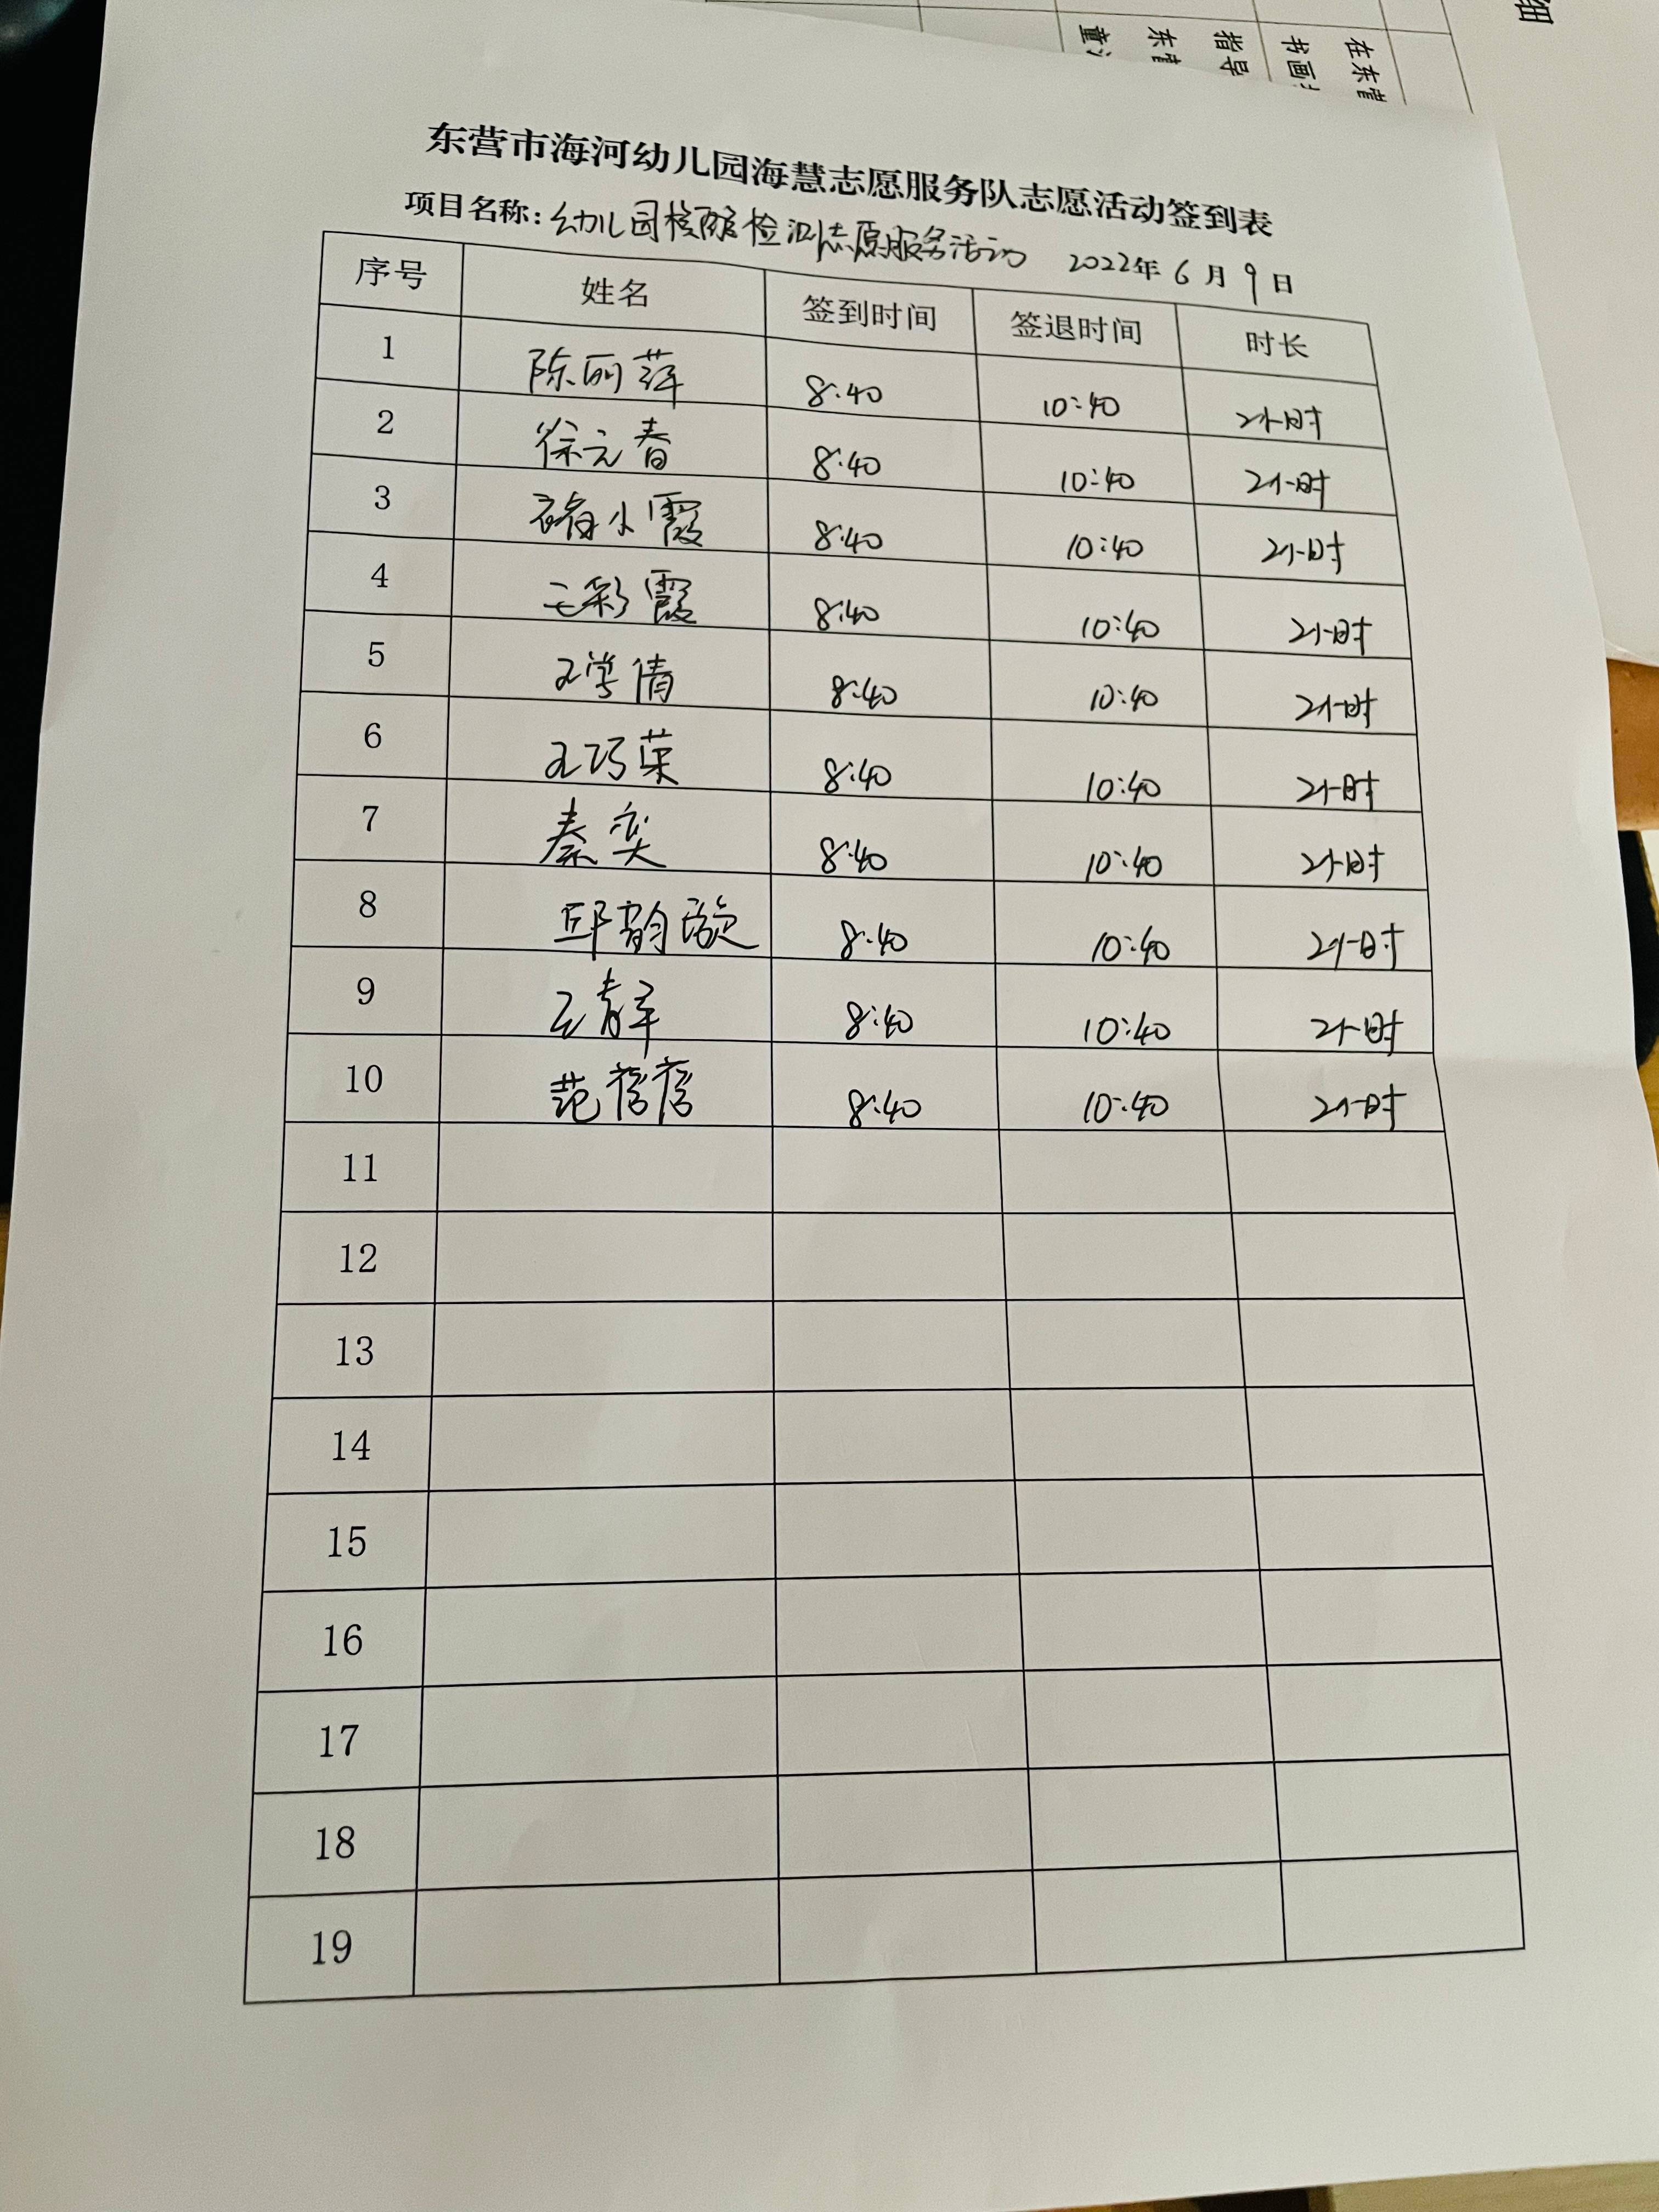 细
在东营
书画
指导
东营
童
东营市海河幼儿园海慧志愿服务队志愿活动签到表
项目名称：幼儿园核酸检测志愿服务活动 2022年6月9日
序号 姓名 签到时间 签退时间 时长
1 陈丽萍 8:40 10:40 2小时
2 徐元春 8:40 10:40 2小时
3 小霞 8:40 10:40 2小时
4 王彩霞 8:40 10:40 2小时
5 王学倩 8:40 10:40 2小时
6 王巧荣 8:40 10:40 2小时
7 秦奕 8:40 10:40 2小时
8 邱韵璇 8:40 10:40 2小时
9 王青 8:40 10:40 2小时
10 范蓓蓓 8:40 10:40 2小时
11
12
13
14
15
16
17
18
19